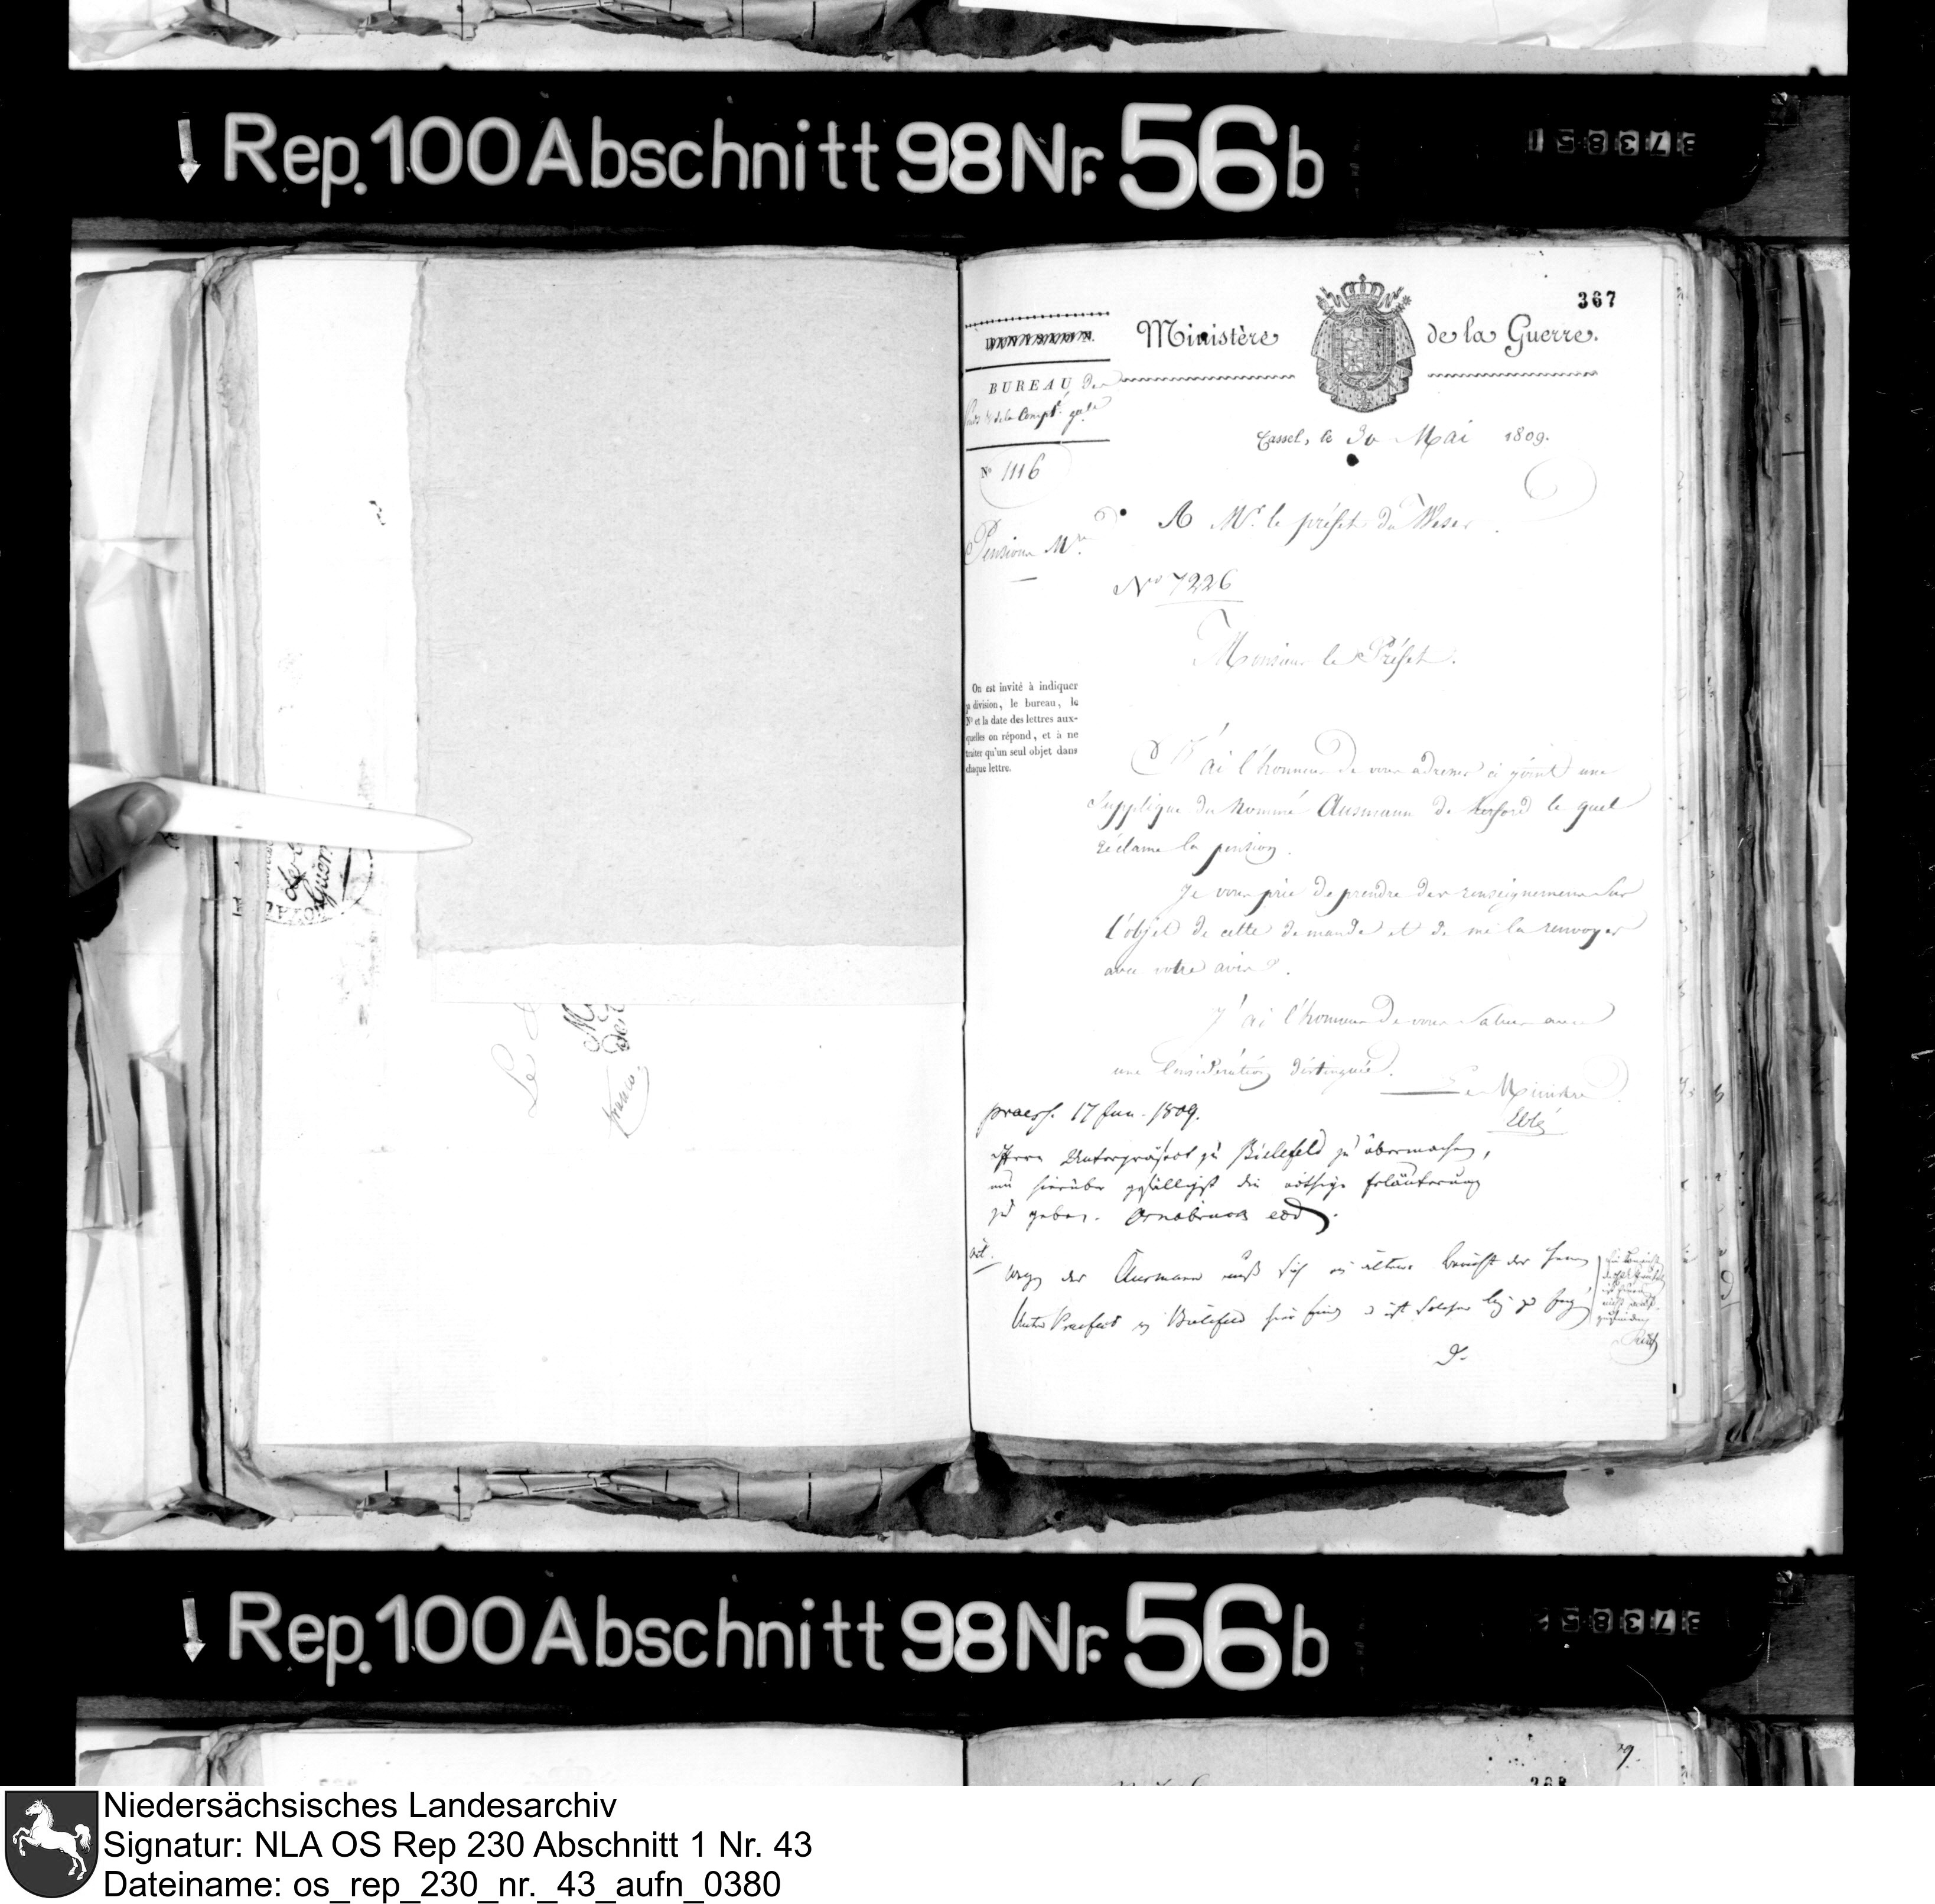 Rep. 100 Abschnitt 98 Nr. 56b
367
Ministère de la Guerre.
BUREAU des
fonds & de la Compté. gale
Cassel, le 30 Mai 1809.
No 1116
A Mr. le préfet du Weser.
Pensions Mres
No 7226
Monsieur le Préfet.
On est invité à indiquer
la division, le bureau, le
No et la date des lettres aux-
quelles on répond, et à ne
traiter qu'un seul objet dans
chaque lettre.
J'ai l'honneur de vous adresser ci joint une
Supplique du nommé Ausmann de herford le quel
réclame la pension.
Je vous prie de prendre des renseignemens sur
l'objet de cette demande et de me la renvoyer
avec votre avis.
J'ai l'honneur de vous saluer avec
une Considération distinguée.
Le Ministre
Eblé
praes. 17 Jun. 1809.
Herrn Unterpräfect zu Bielefeld zu übermachen,
um hierüber gefälligst die nöthige Erläuterung
zu geben. Osnabruck eod.
wegen des Ausmann muß sich ein älterer Bericht des Herrn
Unter Praefect zu Bielefeld hier finden
Le
franco.
Rep. 100 Abschnitt 98 Nr. 56b
Niedersächsisches Landesarchiv
Signatur: NLA OS Rep 230 Abschnitt 1 Nr. 43
Dateiname: os_rep_230_nr._43_aufn_0380